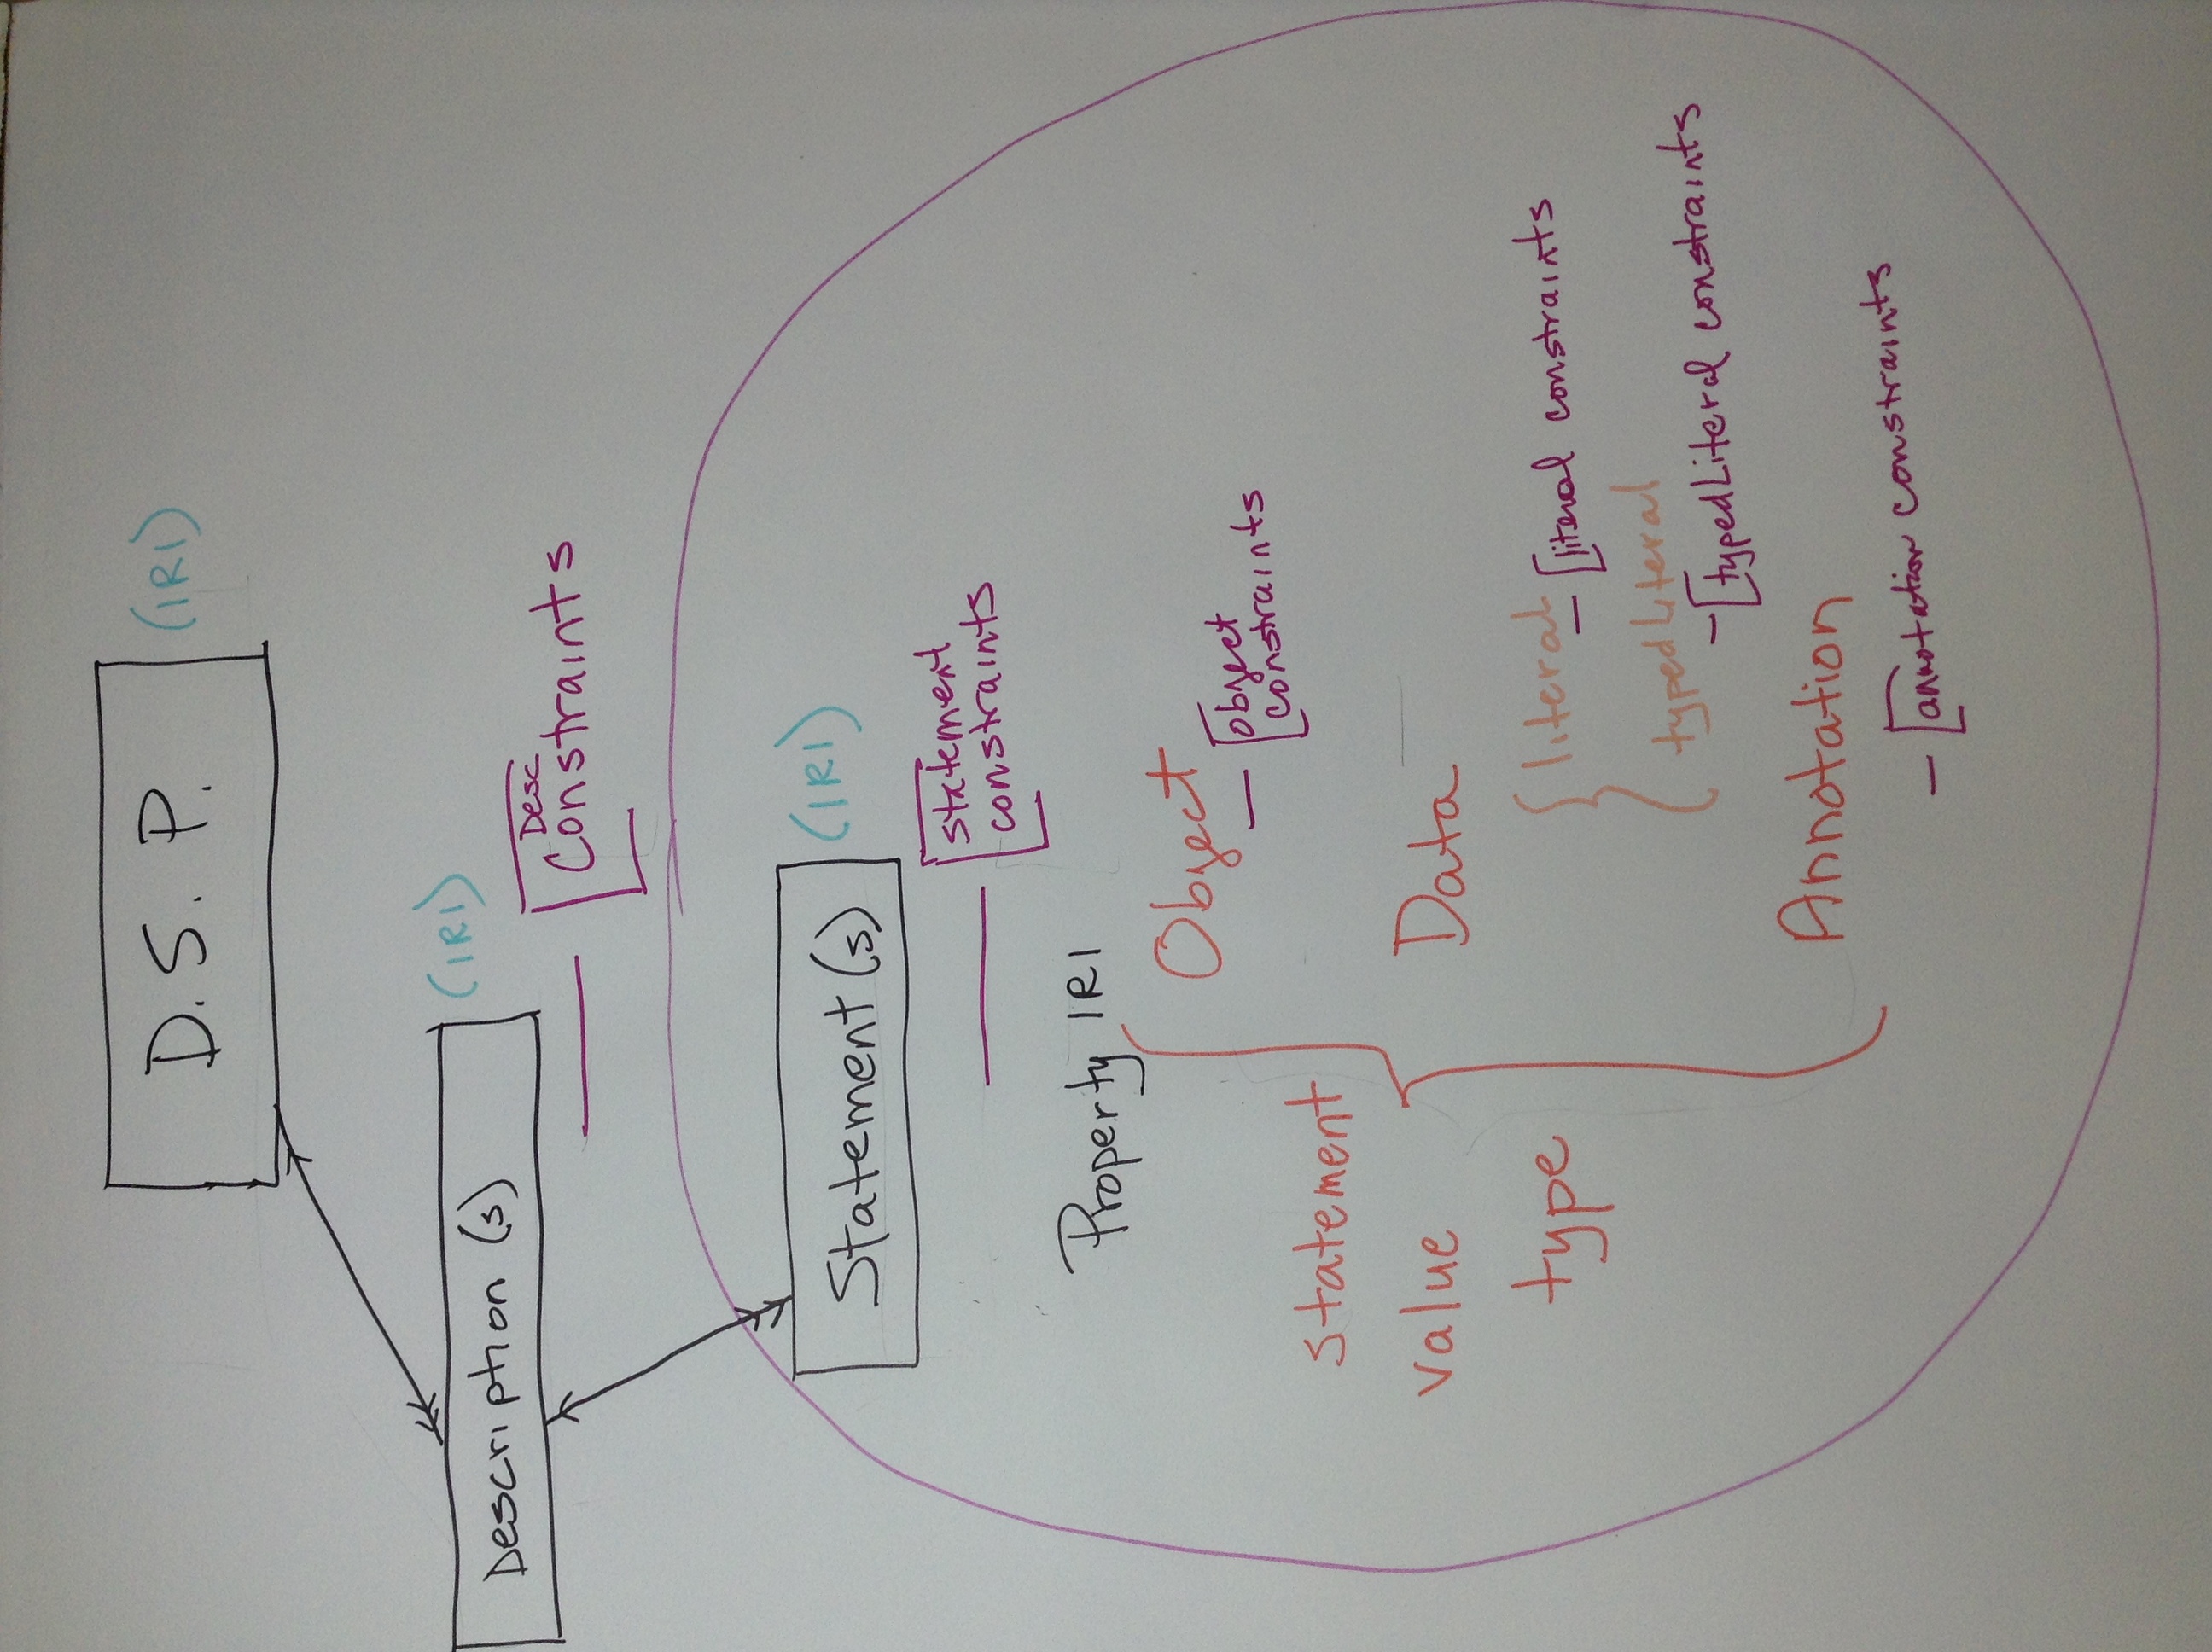 D. S. P. (IRI)
Description (s) (IRI)
Desc
Constraints
Statement (s) (IRI)
statement
constraints
Property IRI
Object
object
constraints
statement
value
type
Data
literal
literal constraints
typedLiteral
typedLiteral constraints
Annotation
annotation constraints